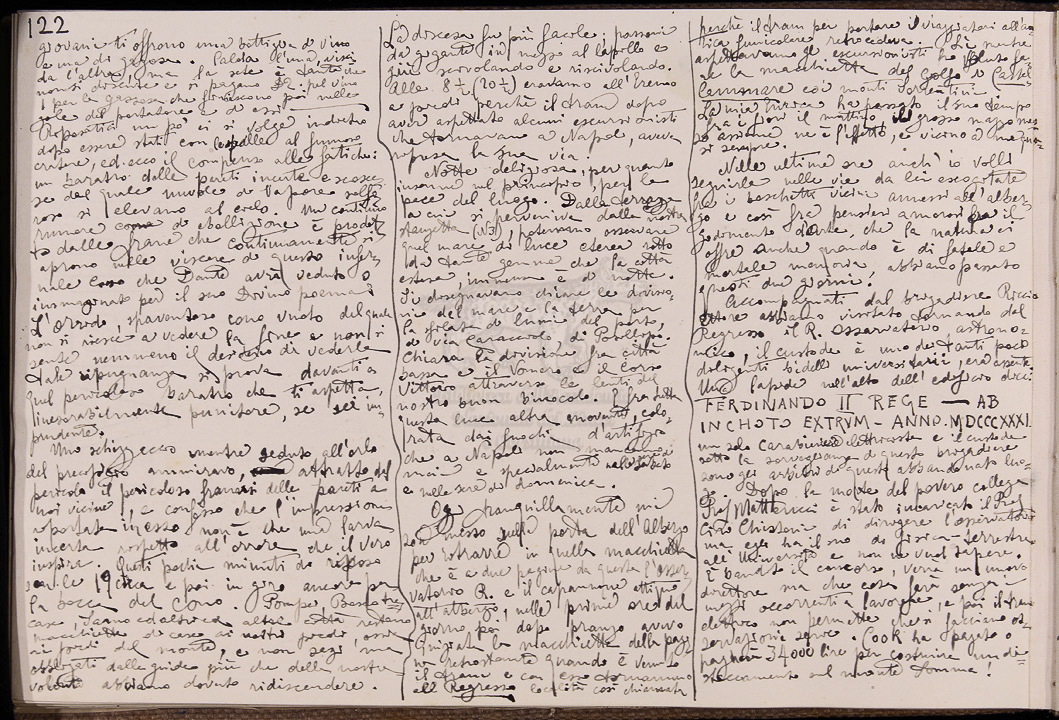 122
giovani ti offrono una bottiglia di vino
e una di gassosa. Calda l'una,
da l'altra, ma la sete è tante che
non si discute e si pagano £2. pel vino
1 per la gassosa che finiscono poi nelle
gole del portatore e di essi.
Riposati un po' ci si volge indietro
dopo essere stati con le spalle al fumoso
cratere, ed ecco il compenso alle fatiche:
un baratro dalle pareti incerte e scosce
se dal quale nuvole di vapore solfo
roso si elevano al cielo. Un continuo
rumore come d'ebollizione è prodot
to dalle frane che continuamente si
aprono nelle viscere di questo infer
nale Cono che Dante avrà veduto o
immaginato per il suo Divino poema?
L'orrido, spaventoso cono vuoto del quale
non si riesce a vedere la fine e non si
sente nemmeno il desiderio di vederla
tale ripugnanza si prova davanti a
quel pericoloso baratro che ti aspetta,
inesorabilmente punitore, se sei im
prudente.
Uno schizzo ecco mentre seduto all'orlo
del precipizio ammiravo, attratto dal
pericolo il pericoloso franarsi delle pareti a
noi vicine, e confesso che l'impressione
riportata in esso non è che una larva
incerta rispetto all'orrore che il vero
inspira. Questi pochi minuti di riposo
sarà le 19 circa e poi in giro ancora per
la bocca del Cono. Pompei, Boscotre
case, Sanno ed altre ed altre città restano
macchiette di case ai nostri piedi, ossia
ai piedi del monte, e non senza una
obbligati dalle guide più che dalla nostra
volontà abbiamo dovuto ridiscendere.
La discesa fu più facile; passoni
da giganti in mezzo al lapillo e
giù scivolando e riscivolando.
Alle 8½ (20½) eravamo all'Eremo
e a piedi perchè il tram dopo
aver aspettato alcuni escursionisti
che tornavano a Napoli, aveva
ripresa la sua via.
Notte deliziosa, per quanto
insonne nel principio, per la
pace del luogo. Dalla terrazza
a cui si perveniva dalla nostra
stanzetta (N3), potevamo osservare
quel mare di luce eterea
da tante gemme che la città
estesa, immensa è di notte.
Si disegnavano chiare le divisio
ni del mare e la terra per
la sfilata di lumi del porto,
di via Caracciolo, di Posillipo.
Chiara la divisione fra città
bassa e il Vomero e il Corso
Vittorio attraverso le lenti del
nostro buon binocolo. E fra tutta
questa luce altra moventesi, colo
rata dai fuochi d'artifizio
che a Napoli non mancano
mai e specialmente nelle sabato
e nelle sere di domenica.
Oggi tranquillamente mi
son messo sulla porta dell'Albergo
per ritrarre in quella macchietta
che è a due pagine da questa l'osser
vatorio R. e il capannone attiguo
all'albergo, nelle prime ore del
giorno poi dopo pranzo avevo
finita la macchietta della pagi
na retrostante quando è venuto
il tram e con esso tornammo
al Regresso località così chiamata
perchè il tram per portare i viaggiatori all'an
tica funicolare retrocedeva. Lì mentre
aspettavamo gli escursionisti ho voluto fa
re la macchietta del golfo di Castel
lammare coi monti Sorrentini.
La mia Enrica ha passato il suo tempo
fra i fiori il mattino, il grosso mazzo
so assieme ne è l'effetto, e vicino a me
si sempre.
Nelle ultime ore anch'io volli
seguirla nelle vie da lei escogitate
fra i boschetti vicini annessi all'alber
go e così fra pensieri amorosi fra il
godimento d'arte, che la natura ci
offre anche quando è di fatale e
mortale memoria, abbiamo passato
questi due giorni.
Accompagnati dal brigadiere Riccio
Ettore abbiamo visitato tornando dal
Regresso il R. Osservatorio, astrono
mico, il custode è uno dei tanti poco
diligenti bidelli universitarii, era assente.
Una lapide nell'alto dell'edificio dice:
FERDINANDO II REGE — AB
INCHOTO EXTRVM — ANNO. MDCCCXXXI.
un solo carabiniere d'Arcosta e il custode
sotto la sorveglianza di questo brigadiere
sono gli arbitri di questo abbandonato luo
go. Dopo la morte del povero collega
Prof Matteucci è stato incaricato il Prof
Ciro Chistoni di dirigere l'osservatorio
ma egli ha il suo di fisica-terrestre
all'Università e non ne vuol sapere.
È bandito il concorso, verrà un nuovo
direttore ma che cosa farà senza i
mezzi occorrenti a lavorare, e poi il tram
elettrico non permette che si facciano os
servazioni sismo. Cook ha pagato o
pagherà 34000 lire per costruire un di
staccamento sul monte Somma!